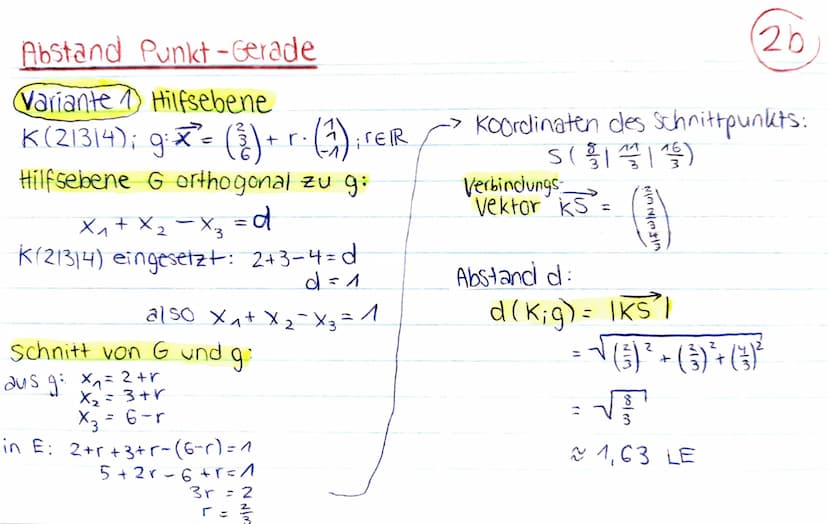 2b
Abstand Punkt-Gerade
Variante 1) Hilfsebene
K(2|3|4); g: x⃗ = (2 3 6) + r · (1 1 -1); r∈ℝ
Hilfsebene G orthogonal zu g:
x₁ + x₂ - x₃ = d
K(2|3|4) eingesetzt: 2+3-4 = d
d = 1
also x₁ + x₂ - x₃ = 1
Schnitt von G und g:
aus g: x₁ = 2+r
x₂ = 3+r
x₃ = 6-r
in E: 2+r+3+r-(6-r)=1
5+2r-6+r=1
3r = 2
r = 2/3
→ Koordinaten des Schnittpunkts:
S(8/3 | 11/3 | 16/3)
Verbindungs-
Vektor KS⃗ = (2/3 2/3 4/3)
Abstand d:
d(K;g) = |KS⃗|
= √((2/3)² + (2/3)² + (4/3)²)
= √(8/3)
≈ 1,63 LE